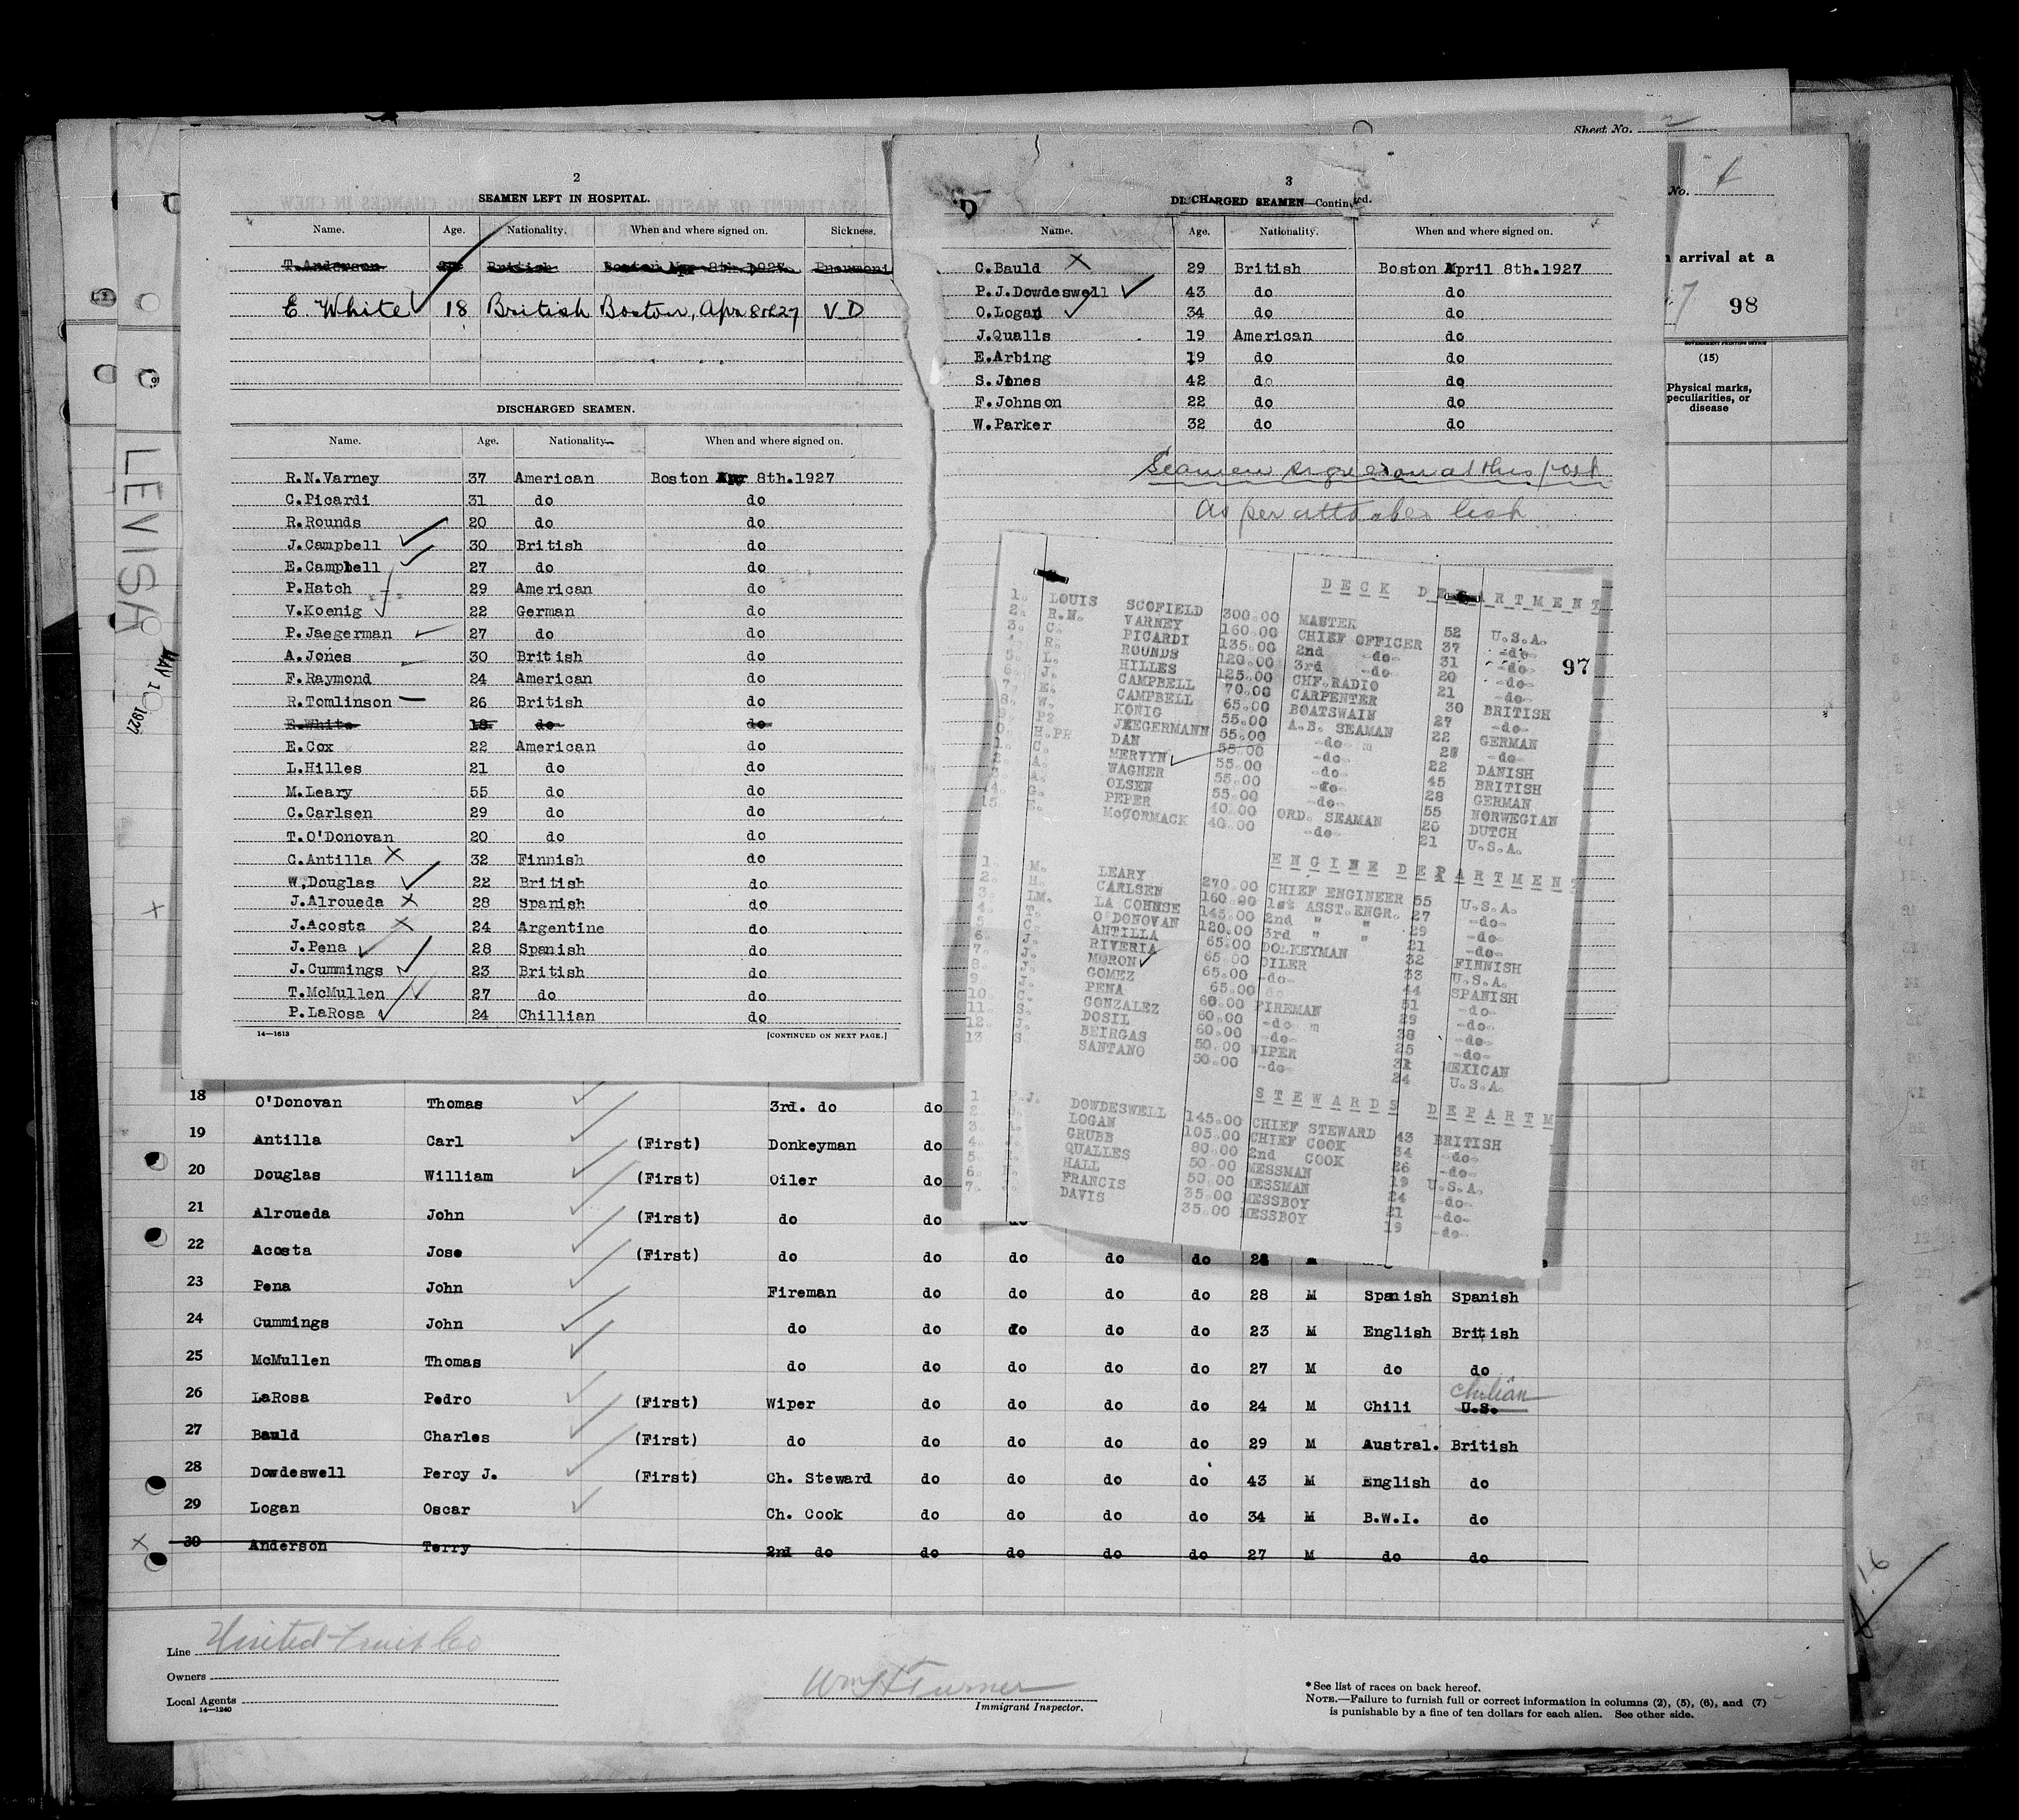 Sheet No.
No. 4
n arrival at a
98
GOVERNMENT PRINTING OFFICE
(15)
Physical marks, peculiarities, or disease
LEVISA
MAY 1 1927
2
SEAMEN LEFT IN HOSPITAL.
Name. Age. Nationality. When and where signed on. Sickness.
T.Anderson British Boston Apr 8th.1927. Pneumoni
E. White 18 British Boston, Apr 8th 27 V D
DISCHARGED SEAMEN.
Name. Age. Nationality When and where signed on.
R.N.Varney 37 American Boston Apr 8th.1927
C.Picardi 31 do do
R.Rounds 20 do do
J.Campbell 30 British do
E.Campbell 27 do do
P.Hatch 29 American do
V.Koenig 22 German do
P.Jaegerman 27 do do
A.Jones 30 British do
F.Raymond 24 American do
R.Tomlinson 26 British do
E.White 18 do do
E.Cox 22 American do
L.Hilles 21 do do
M.Leary 55 do do
C.Carlsen 29 do do
T.O'Donovan 20 do do
C.Antilla 32 Finnish do
W.Douglas 22 British do
J.Alroueda 28 Spanish do
J.Acosta 24 Argentine do
J.Pena 28 Spanish do
J.Cummings 23 British do
T.McMullen 27 do do
P.LaRosa 24 Chillian do
14—1613 [CONTINUED ON NEXT PAGE.]
3
D
DISCHARGED SEAMEN—Continued.
Name. Age. Nationality. When and where signed on.
C.Bauld 29 British Boston April 8th.1927
P.J.Dowdeswell 43 do do
O.Logan 34 do do
J.Qualls 19 American do
E.Arbing 19 do do
S.Jones 42 do do
F.Johnson 22 do do
W.Parker 32 do do
Seamen signed on at this port
As per attached list
97
DECK DEPARTMENT
1. LOUIS SCOFIELD 300.00 MASTER 52 U.S.A.
2. R.N. VARNEY 160.00 CHIEF OFFICER 37 -do-
3. C. PICARDI 135.00 2nd -do- 31 -do-
4. R. ROUNDS 120.00 3rd -do- 20 -do-
5. L. HILLES 125.00 CHF.RADIO 21 -do-
6. J. CAMPBELL 70.00 CARPENTER 30 BRITISH
7. E. CAMPBELL 65.00 BOATSWAIN 27 -do-
8. W. KONIG 55.00 A.B. SEAMAN 22 GERMAN
9 P2 JEEGERMANN 55.00 -do- 28 -do-
0. H.PR DAN 55.00 -do- 22 DANISH
1. C. MERVYN 55.00 -do- 45 BRITISH
2. A. WAGNER 55.00 -do- 28 GERMAN
3. A. OLSEN 55.00 -do- 55 NORWEGIAN
14. G. PEPER 40.00 ORD. SEAMAN 20 DUTCH
15 McCORMACK 40.00 -do- 21 U.S.A.
ENGINE DEPARTMENT
1. M. LEARY 270.00 CHIEF ENGINEER 55 U.S.A.
2. H. CARLSEN 160.00 1st ASST.ENGR. 27 -do-
3. LM. LA COHNSE 145.00 2nd " " 29 -do-
4. T. O'DONOVAN 120.00 3rd " " 21 -do-
5 C. ANTILLA 65.00 DONKEYMAN 32 FINNISH
6. J. RIVERIA 65.00 OILER 33 U.S.A.
7. J. MORON 65.00 -do- 44 SPANISH
8. J. GOMEZ 65.00 do 51 -do-
9. J. PENA 60.00 FIREMAN 28 -do-
10. C. GONZALEZ 60.00 -do- 38 -do-
11. S. DOSIL 60.00 -do- 25 -do-
12. J. BEIRGAS 50.00 WIPER 31 MEXICAN
13 S. SANTANO 50.00 -do- 24 U.S.A.
STEWARDS DEPARTM
1. P.J. DOWDESWELL 145.00 CHIEF STEWARD 43 BRITISH
2. LOGAN 105.00 CHIEF COOK 34 -do-
3. GRUBB 80.00 2nd COOK 26 -do-
4. QUALLES 50.00 MESSMAN 19 U.S.A.
5. HALL 50.00 MESSMAN 24 -do-
6. FRANCIS 35.00 MESSBOY 21 -do-
7. DAVIS 35.00 MESSBOY 19 -do-
18 O'Donovan Thomas 3rd. do do
19 Antilla Carl (First) Donkeyman do
20 Douglas William (First) Oiler do
21 Alroueda John (First) do do do
22 Acosta Jose (First) do do do do do 24
23 Pena John Fireman do do do do 28 M Spanish Spanish
24 Cummings John do do do do do 23 M English British
25 McMullen Thomas do do do do do 27 M do do
Chilian
26 LaRosa Pedro (First) Wiper do do do do 24 M Chili U.S.
27 Bauld Charles (First) do do do do do 29 M Austral. British
28 Dowdeswell Percy J. (First) Ch. Steward do do do do 43 M English do
29 Logan Oscar Ch. Cook do do do do 34 M B.W.I. do
30 Anderson Terry 2nd do do do do do 27 M do do
Line United Fruit Co
Owners
Local Agents
14—1240
Wm H Turner
Immigrant Inspector.
* See list of races on back hereof.
NOTE.—Failure to furnish full or correct information in columns (2), (5), (6), and (7)
is punishable by a fine of ten dollars for each alien. See other side.